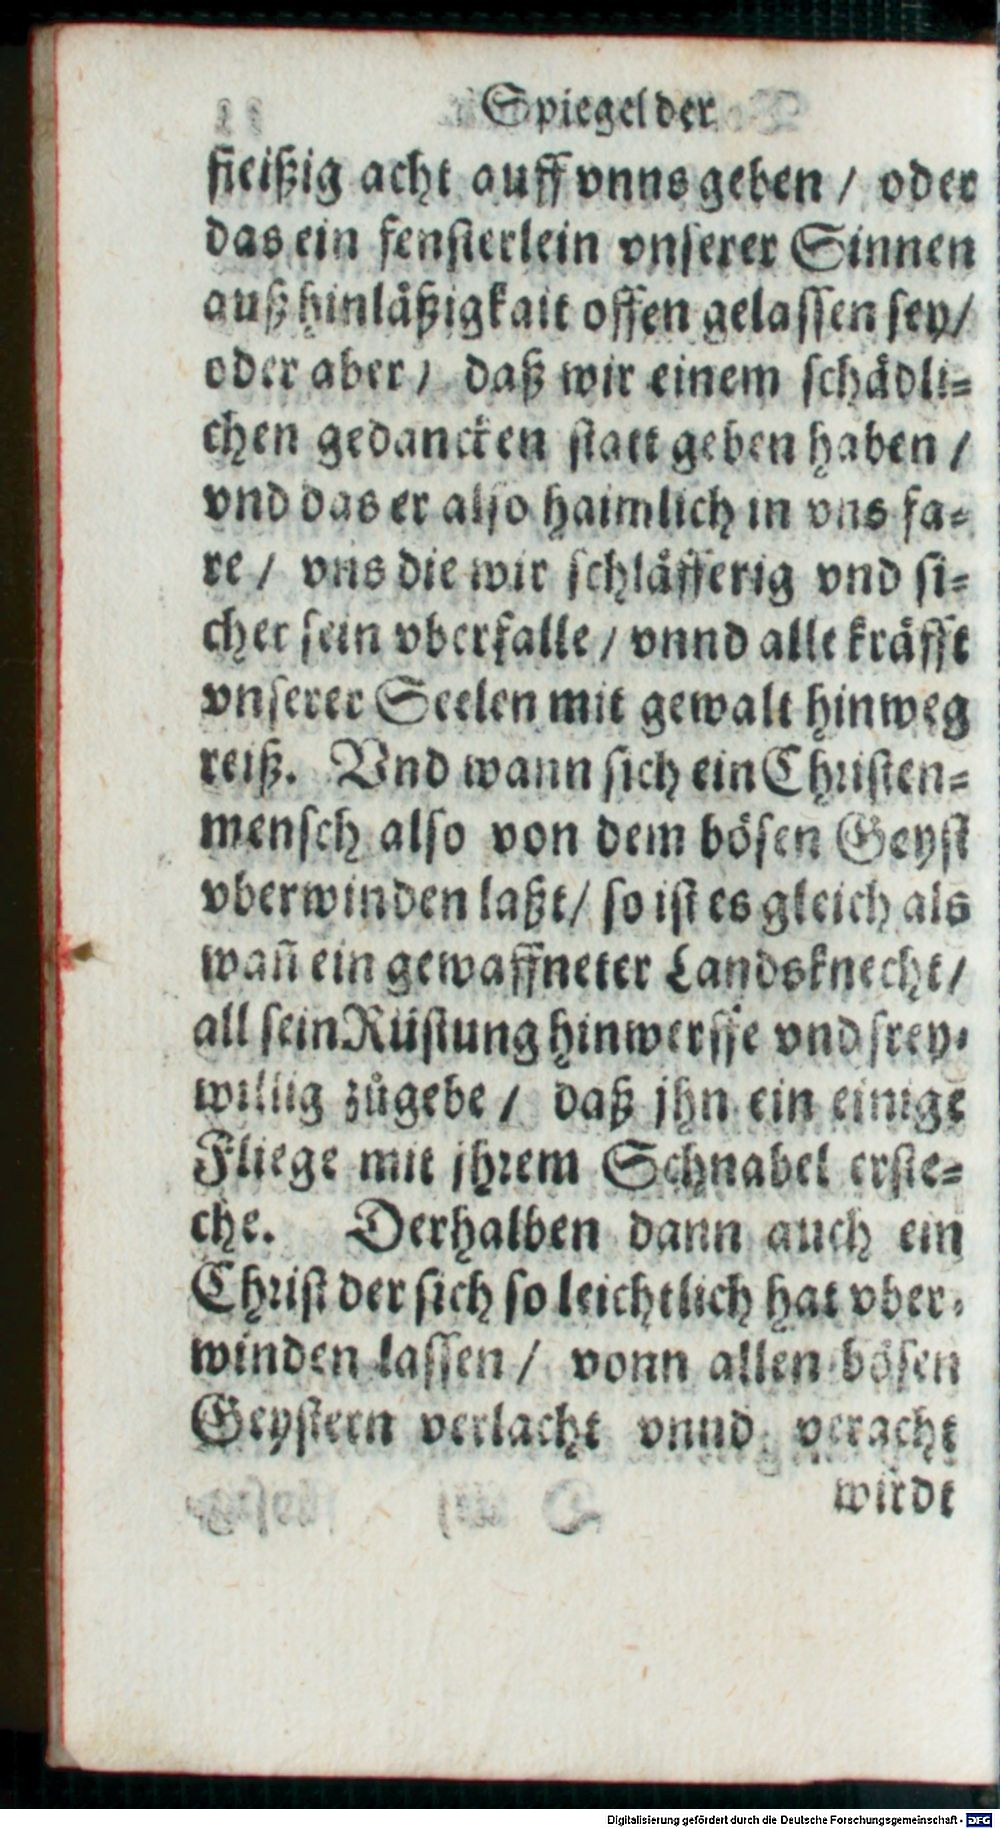 Spiegel der
fleißig acht auff vnns geben / oder
das ein fensterlein vnserer Sinnen
auß hinläßigkait offen gelassen sey/
oder aber / daß wir einem schädli=
chen gedancken statt geben haben /
vnd das er also haimlich in vns fa=
re / vns die wir schläfferig vnd si=
cher sein vberfalle / vnnd alle kräfft
vnserer Seelen mit gewalt hinweg
reiß. Vnd wann sich ein Christen=
mensch also von dem bösen Geyst
vberwinden laßt/ so ist es gleich als
wañ ein gewaffneter Landsknecht/
all sein Rüstung hinwerffe vnd frey=
willig zůgebe / daß jhn ein einige
Fliege mit jhrem Schnabel erste=
che. Derhalben dann auch ein
Christ der sich so leichtlich hat vber=
winden lassen / vonn allen bösen
Geystern verlacht vnnd veracht
wirdt
Digitalisierung gefördert durch die Deutsche Forschungsgemeinschaft - DFG